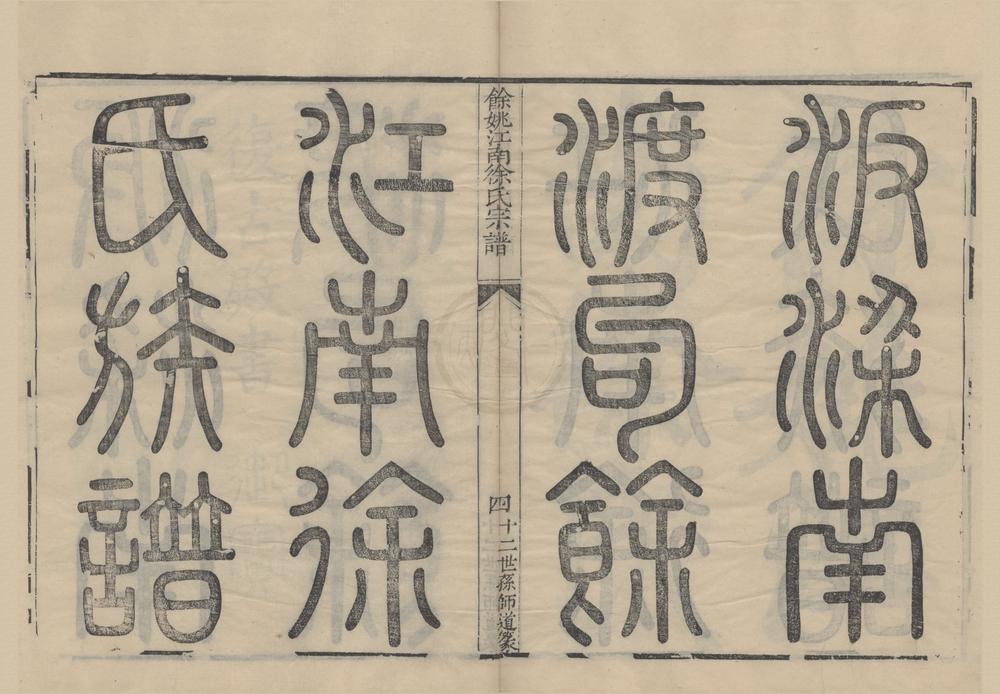 汳梁南
渡局餘
餘姚江南徐氏宗譜
四十二世孫師道篆
江南徐
氏族譜